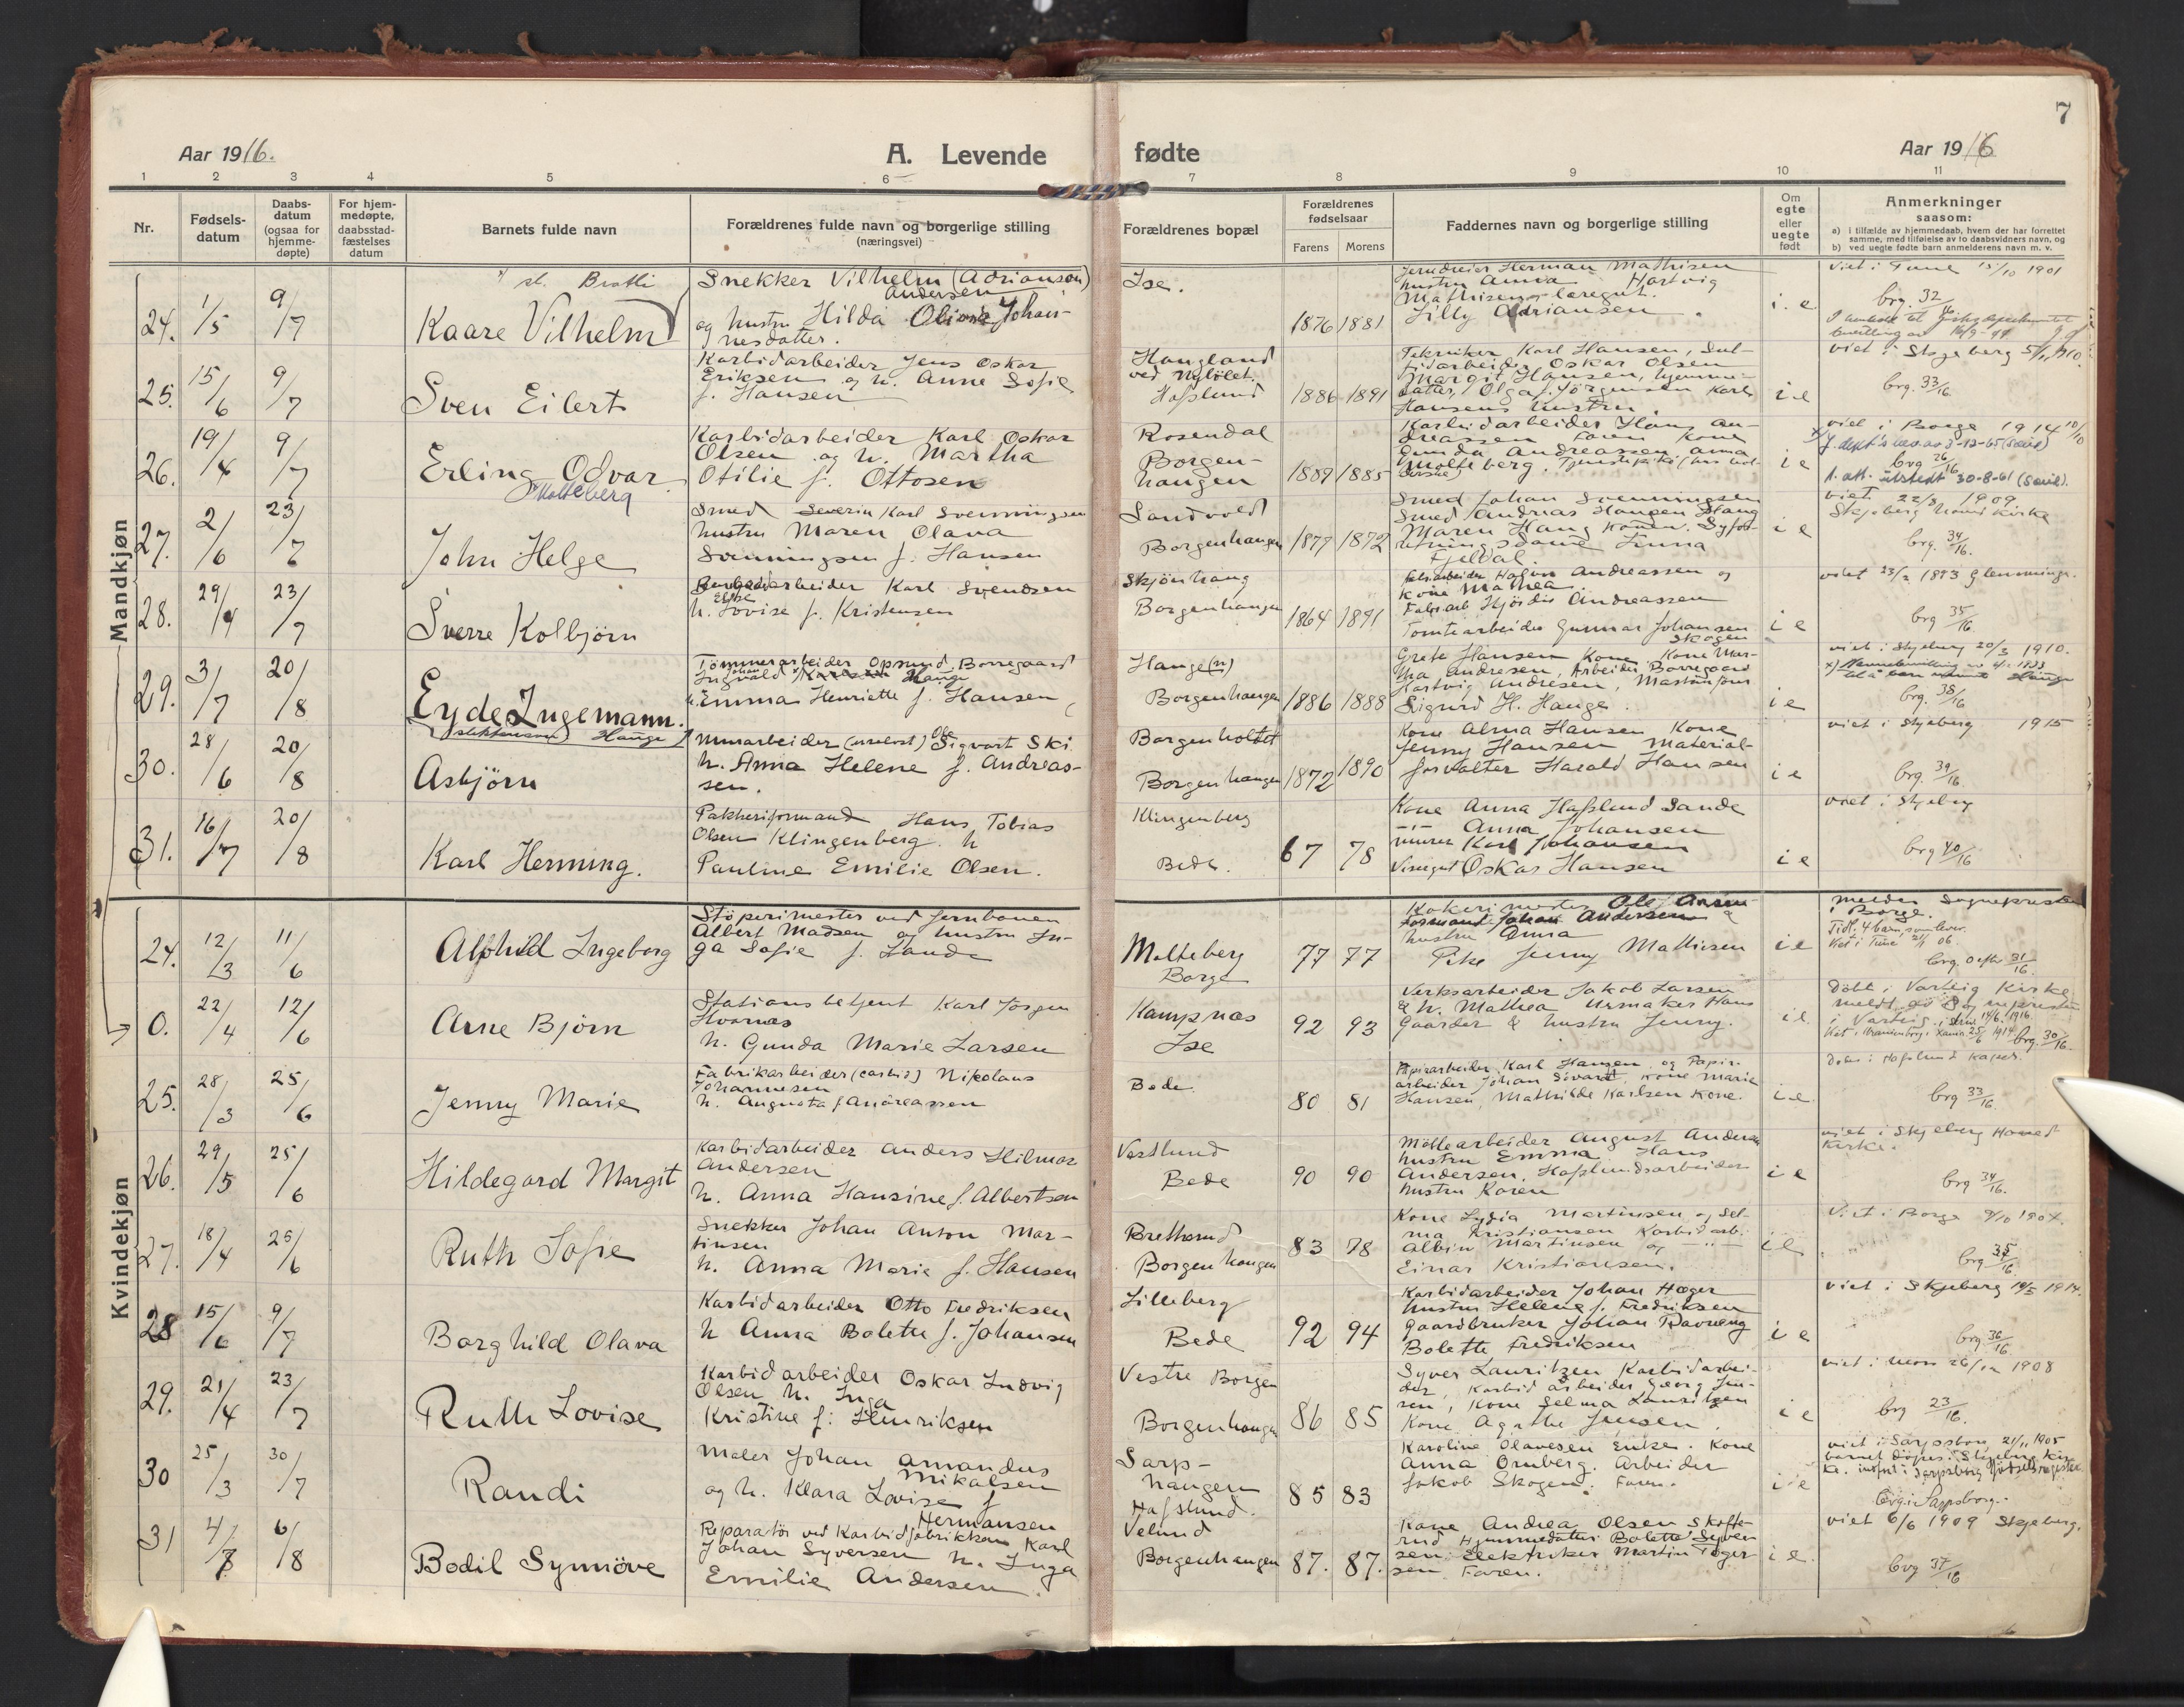 7
Aar 1916.
A. Levende
fødte
Aar 1916
1 2 3 4 5 6 7 8 9 10 11
Nr.
Fødsels-
datum
Daabs-
datum
(ogsaa for
hjemme-
døpte)
For hjem-
medøpte,
daabsstad-
fæstelses
datum
Barnets fulde navn
Forældrenes fulde navn og borgerlige stilling
(næringsvei)
Forældrenes bopæl
Forældrenes
fødselsaar
Farens Morens
Faddernes navn og borgerlige stilling
Om
egte
eller
uegte
født
Anmerkninger
saasom:
a) i tilfælde av hjemmedaab, hvem der har forrettet
samme, med tilføielse av to daabsvidners navn, og
b) ved uegte fødte barn anmelderens navn m. v.
Mandkjøn
24. 1/5 9/7
Kaare Vilhelm
Snekker Vilhelm (Adriansen)
Andersen
og hustru Hilda Olivia Johan-
nesdatter.
Ise.
1876 1881
Jerndreier Herman Mathisen
hustru Anna Hartvig
Mathisen
Lilly Adriansen
i. e
viet i Tune 15/10 1901
brg. 32/16
25. 15/6 9/7
Sven Eilert
Karbidarbeider Jens Oskar
Eriksen og h. Anne Sofie
f. Hansen
Haugland
ved Nylölet.
Hafslund
1886 1891
Tekniker Karl Hansen,
Oskar Olsen
Margit Hansen, hjemme-
datter, Olga f. Jörgensen Karl
Hansens hustru.
i e
viet i Skjeberg 5/11 1910.
brg. 33/16.
26. 19/4 9/7
Erling Odvar
Molteberg
Karbidarbeider Karl Oskar
Olsen og h. Martha
Otilie f. Ottosen
Rosendal
Borgen-
haugen
1889 1885
Karbidarbeider Hans An-
dreassen kone
Gunda Andreassen Anna
Molteberg.
i e
viet i Borge 1914 10/10
brg 26/16
1. att. utstedt 30-8-61
27. 2/6 23/7
John Helge
Smed Severin Karl Svenningsen
hustru Maren Olava
Svenningsen f. Hansen
Sandvold
Borgenhaugen
1877 1872
Smed Johan Svenningsen
Smed Andreas Haugen Haug
Maren Haug
Fjeldal
i e
viet 22/3 1909
Skjeberg hoved kirke
brg. 34/16.
28. 29/4 23/7
Sverre Kolbjörn
Karl Svendsen
h. Lovise f. Kristensen
Skjönhaug
Borgenhaugen
1864 1891
Andreassen og
kone Mathea
Hjördis Andreassen
Tomtearbeider Gunnar Johansen
Skogen
i e
viet 23/2 1893 Glemminge.
brg 35/16
29. 3/7 20/8
Eyde Ingemann.
(slektsnavn) Hauge
Tömmerarbeider Opsund, Borregaard
Ingvald Johan Hauge
h. Emma Henriette f. Hansen
Hauge(n)
Borgenhaugen
1886 1888
Grete Hansen Kone, Kone Mar-
tha Andresen, Arbeider Borregaard
Hartvig Andresen,
Sigurd H. Hauge.
i e
viet i Skjeberg 20/3 1910.
brg. 38/16
30. 28/6 20/8
Asbjörn
Murarbeider Ole Sigvart Ski
h. Anna Helene f. Andreas-
sen.
Borgenholdt
Borgenhaugen
1872 1890
Kone Alma Hansen Kone
Jenny Hansen Material-
forvalter Harald Hansen
i e
viet i Skjeberg 1915
brg. 39/16.
31. 16/7 20/8
Karl Herming.
Pakheriformand Hans Tobias
Olsen Klingenberg. h
Pauline Emilie Olsen.
Klingenberg
Bede.
67 78
Kone Anna Hafslund Sande
-"- Anna Johansen
murer Karl Johansen
Visergut Oskar Hansen
i e
viet i Skjeberg
brg 40/16
Kvindekjøn
24. 12/3 11/6
Alfhild Ingeborg
Støperimester ved Jernbanen
Albert Madsen og hustru In-
ga Sofie f. Lande
Molteberg
Borge
77 77
Formand Johan Andersen &
hustru Anna
Pike Jenny Mathisen
i e
melder Sognepresten
i Borge.
Tidl. 4 barn, som lever.
Viet i Tune 2/1 06.
brg. 31/16.
0. 22/4 12/6
Arne Björn
Stationsbetjent Karl Jörgen
Hvornæs
h. Gunda Marie Larsen
Kampnæs
Ise
92 93
Verksarbeider Jakob Larsen
& h. Mathea Urmaker Hans
Gaarder & hustru Jenny.
i e
Döbt i Varteig Kirke
meldt av Sognepresten
i Varteig i skriv. 14/6. 1916.
brg. 30/16.
25. 28/3 25/6
Jenny Marie
Fabrikarbeider (carbid) Nikolaus
Johannesen
h. Augusta f. Andreassen
Bede
80 81
Papirarbeider Karl Hansen og Papir-
arbeider Johan Sivard. Kone Marie
Hansen, Mathilde Karlsen Kone.
i e
Döbt i Hafslund Kapel.
brg 33/16.
26. 29/5 25/6
Hildegard Margit
Karbidarbeider Anders Hilmar
Andersen
h. Anna Hansine f. Albertsen
Vestlund
Bede
90 90
Möllearbeider August Andersen
hustru Emma Hans
Andersen, Hafslundsarbeider
hustru Karen
i e
viet i Skjeberg Hoved
kirke.
brg 34/16.
27. 18/4 25/6
Ruth Sofie
Snekker Johan Anton Mar-
tinsen
h. Anna Marie f. Hansen
Bretterud
Borgenhaugen
83 78
Kone Lydia Martinsen og Sel-
ma Kristiansen Karbidarb.
Albin Martinsen og -"-
Einar Kristiansen.
i e
Viet i Borge 9/10 1904.
brg. 35/16
28 15/6 9/7
Borghild Olava
Karbidarbeider Otto Fredriksen
h Anna Bolette f. Johansen
Lilleberg
Bede
92 94
Karbidarbeider Johan Hæger
hustru Helene f. Fredriksen
Gaardbruker Johan Ravneng
Bolette Fredriksen
i e
viet i Skjeberg 14/5 1914.
brg 36/16
29. 21/4 23/7
Ruth Lovise
Karbidarbeider Oskar Ludvig
Olsen h. Inga
Kristine f. Henriksen
Vestre Borgen
Borgenhaugen
86 85
Syver Lauritzen Karbidarbei-
der, Karbidarbeider Georg Jen-
sen, Kone Selma Lauritzen
Kone Agathe Jensen
i e
viet i Moss 26/12 1908
brg 23/16.
30 25/3 30/7
Randi
Maler Johan Amandus
Mikalsen
og h. Klara Lovise f
Hermansen
Sarp-
haugen
Hafslund.
85 83
Karoline Olavesen Enke. Kone
Anna Ornberg. Arbeider
Jakob Skogen. Faren.
i e
viet i Sarpsborg 21/11 1905
barnet döpes i Skjeberg kir-
ke. indført i Sarpsborg fødselsregister
brg i Sarpsborg.
31 4/7 6/8
Bodil Synnöve
Reparatör ved Karbidfabrikken Karl
Johan Syversen h. Inga
Emilie Andersen.
Velund
Borgenhaugen
87. 87.
Kone Andrea Olsen Skofte-
rud Hjemmedatter Bolette Syver
sen. Elektriker Martin Toger
sen Faren.
i e.
viet 6/6 1909 Skjeberg.
brg 37/16